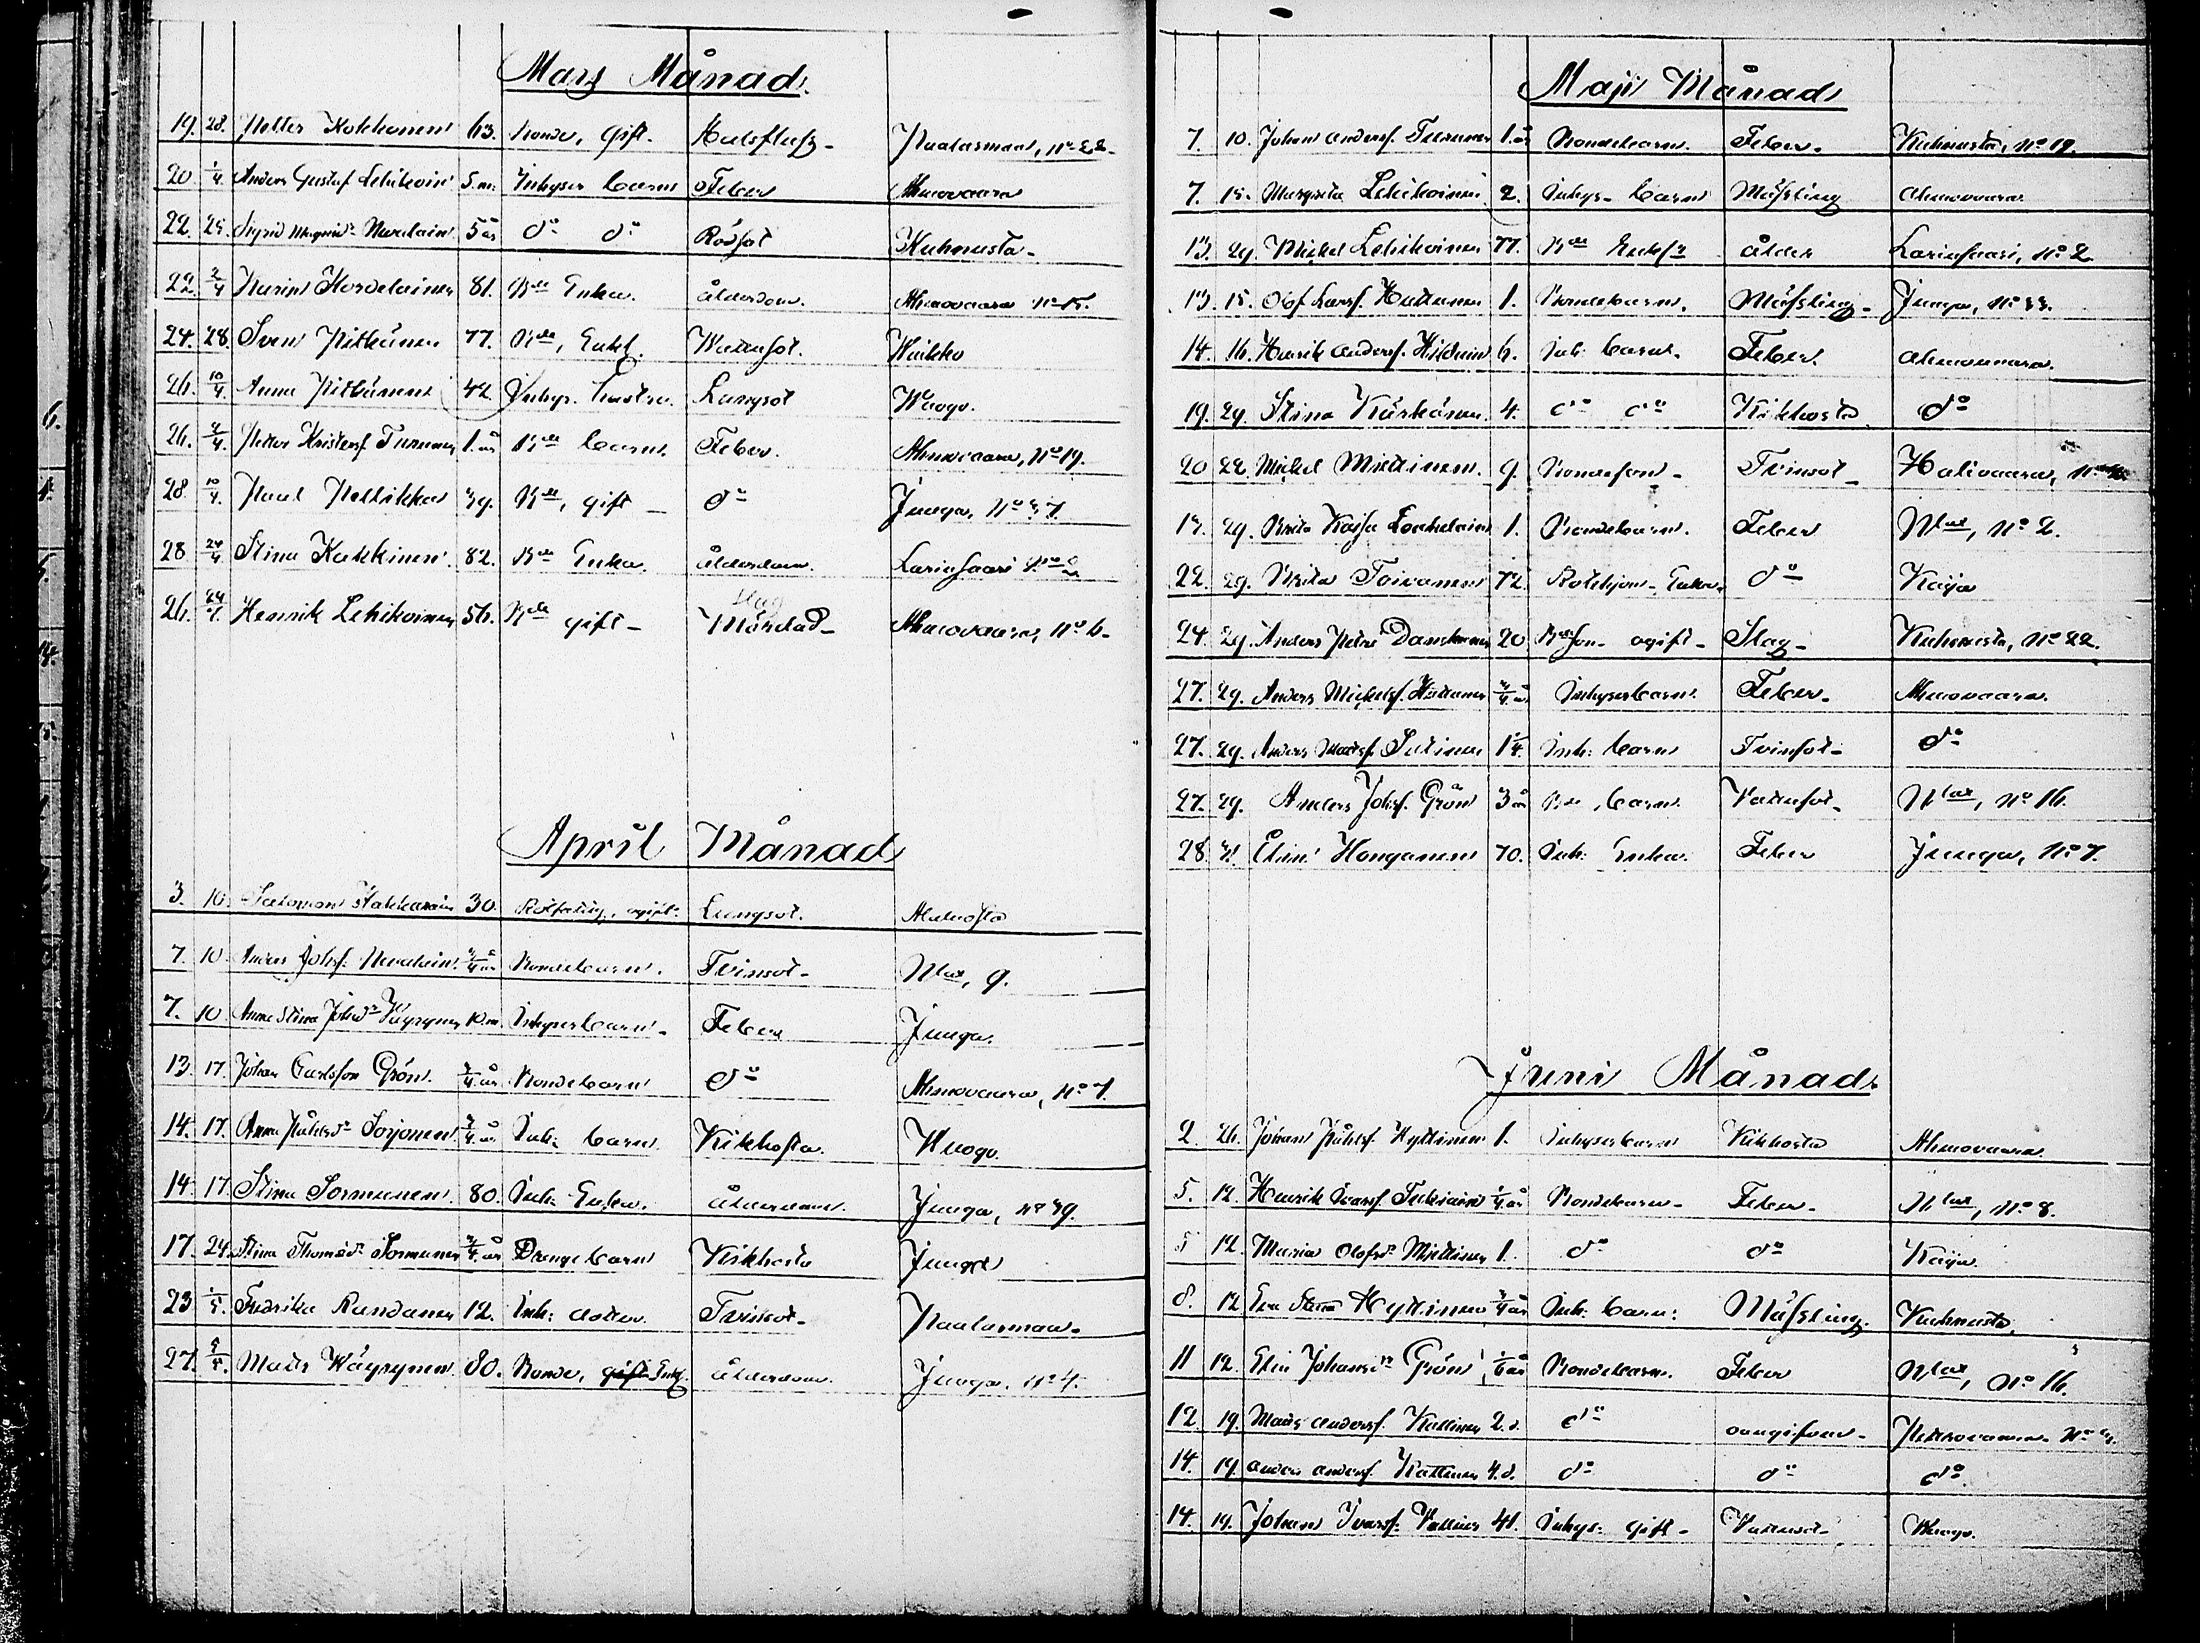 Mars Månad
19. 28. Petter Kokkonen 63. Bonde, gift. Halsfluss Pualasmaa, No 22.
20 1/4. Anders Gustaf Lehikoin 5.m. Inhyses barn Feber Ahmovaara
22. 25. Sigrid Magnid:r Nevalain 5 år do do Rödsot Kuhnusta
22 2/4 Karin Hordelainen 81. Bde Enka. ålderdom. Ahmovaara No 15.
24. 28. Sven Pitkänen 77. Bde, Enkl. Wattusot. Waikko
26. 10/4. Anna Pitkänen 42 Inhys. hustru. Lungsot Wuogo.
26. 2/4. Petter Kristersf. Turunen 1. år Bde barn. Feber. Ahmovaara, No 19.
28 10/4. Paul Pellikka 39. Bde, gift do Juuga, No 37.
28 24/4 Stina Kukkinen. 82. Bde Enka. ålderdom. Larinsaari No 2
26. 24/4. Henrik Lehikoinen 56. Bde gift Slag Ahmovaara, No 6.
April Månad
3. 10. Salomon 30. agift. Lungsot.
7. 10 Anders Johsf. Nevalain. 3/4 år Bondebarn. Tvinsot Nlax, 9.
7. 10 Anna Stina Johsd:r Väyrynen 10.m. Inhysesbarn Feber Juuga.
13. 17. Johan Carlsson Grön. 3/4 år Bondebarn do Ahmovaara, No 7.
14. 17. Anna Påhlsd:r Sorjonen 3/4 år Inh: barn. Kikhosta. Wuogo.
14 17. Stina Sormunen. 80. Inh: Enka. Ålderdom. Juuga, No 39.
17. 24. Stina Thomasd:r Sormunen 3/4 år Drengebarn Kikhosta Juuga
23 1/5. Fredrika Randanen 12. Inh: dotter. Tvinsot Pualasmaa.
27. 5/5. Mats Wäyrynen. 80. Bonde, gift Enkl. ålderdom. Juuga, No 4.
Maji Månad
7. 10. Johan Andersf. Turunen 1. år Bondebarn. Feber. Kuhnusta, No 19.
7. 15. Margreta Lehikoinen 2. Inhys. barn Mässling Ahmovaara.
13. 29. Mickel Lehikoinen 77. Bde Enkl. ålder Larinsaari, No 2
13. 15. Olof Larsf. Huttunen 1. Bondebarn. Mässling Juuga, No 33.
14. 16. Henrik Andersf. 6. Inh: barn. Feber. Ahmovaara.
19. 29. Stina Kärkäinen 4. do do Kikhosta do
20 22. Mickel Miettinen. 9. Bondeson Tvinsot Halivaara,
12. 29. Brita Kajsa 1. Bondebarn. Feber Nlax, No 2.
22. 29. Brita Toivanen 72. Enka. do Kajo
24. 29. Anders Petter Danskanen 20 Bdeson. ogift Slag Kuhnusta, No 22.
27. 29. Anders Mickelsf. Huttunen 3/4 å Inhysesbarn Feber. Ahmovaara.
27. 29. Anders Matsf. Sutinen 1 1/4. Inh: barn Tvinsot do
27. 29. Anders Johsf. Grön 3 år Bde, barn Vattusot Nlax, No 16.
28. 31. Elin Honganen 70. Inh: Enka. Feber Juuga, No 7.
Juni Månad
2. 26. Johan Påhlsf. Hyttinen 1. Inhysesbarn Kikhosta Ahmovaara.
5. 12. Henrik Ivarsf. 1/4 år Bondebarn Feber. Nlax, No 8.
5 12. Maria Olofsd:r Miettinen 1. do do Kajo
8. 12. Eva Stina Hyttinen 3/4 år Inh: barn: Mässling. Kuhnusta.
11 12. Elin Johansd:r Grön 1/6 år Bondebarn. Feber Nlax, No 16.
12 19. Mats Andersf. Kallinen 2.d. do oangifven Petrovaara No 3.
14. 19 Anders Andersf. Kallinen 4.d. do do do
14. 19. Johan Ivarsf. 41. Inhys: gift Vattusot Wuogo.